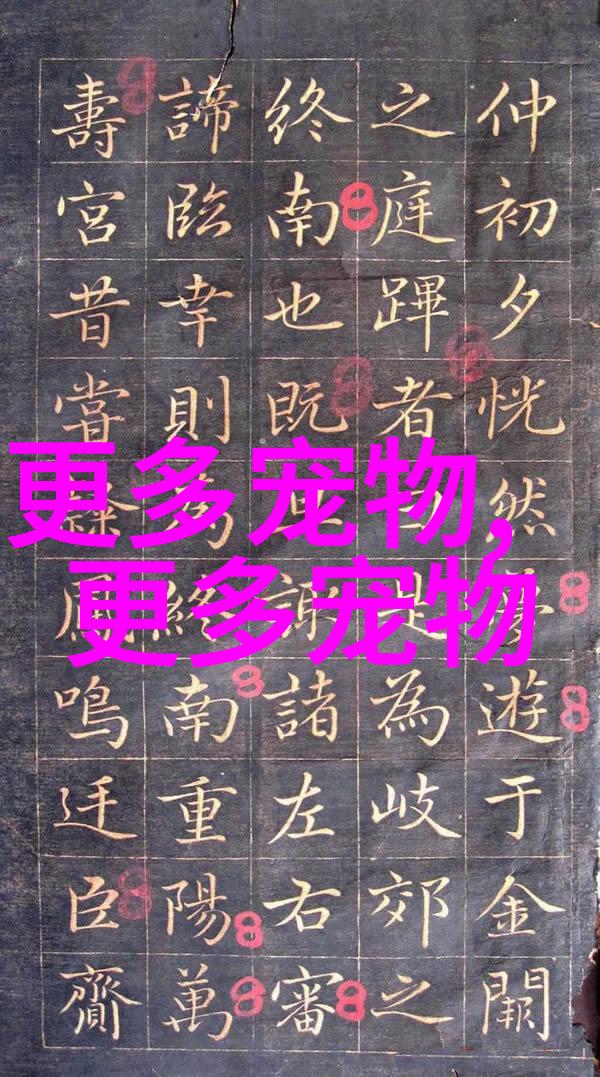 仲初夕恍然遊于金闕
之庭蹕者曰是為岐郊之
終南也既諸左右審
諦臨幸則為終南重陽萬
壽宮昔嘗鳳鳴廷臣齎
更多宠物,
更多宠物